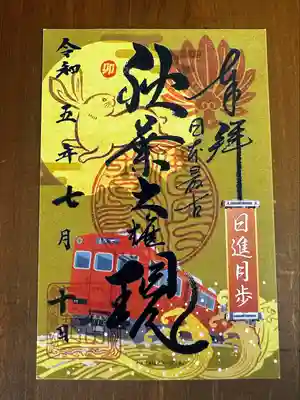 奉拝
日本最古
秋葉大権現
日進月歩
卯
令和五年七月十日